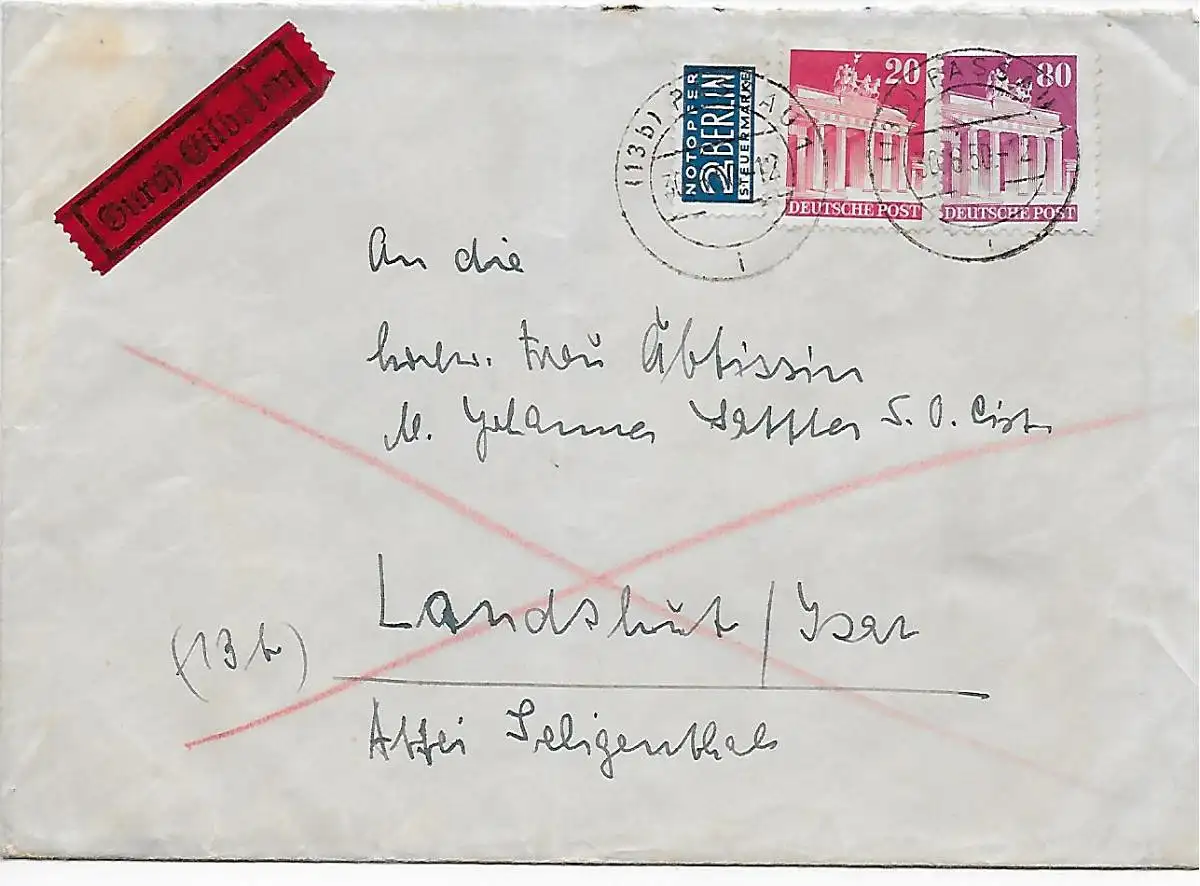 Durch Eilboten
NOTOPFER
2 BERLIN
STEUERMARKE
20
DEUTSCHE POST
80
DEUTSCHE POST
(13b) PASSAU 1
12
i
(13b) PASSAU 1
30.6.50-12
i
An die
hochw. Frau Äbtissin
M. Johanna Settler S. O. Cist.
Landshut / Isar
(13b)
Abtei Seligenthal